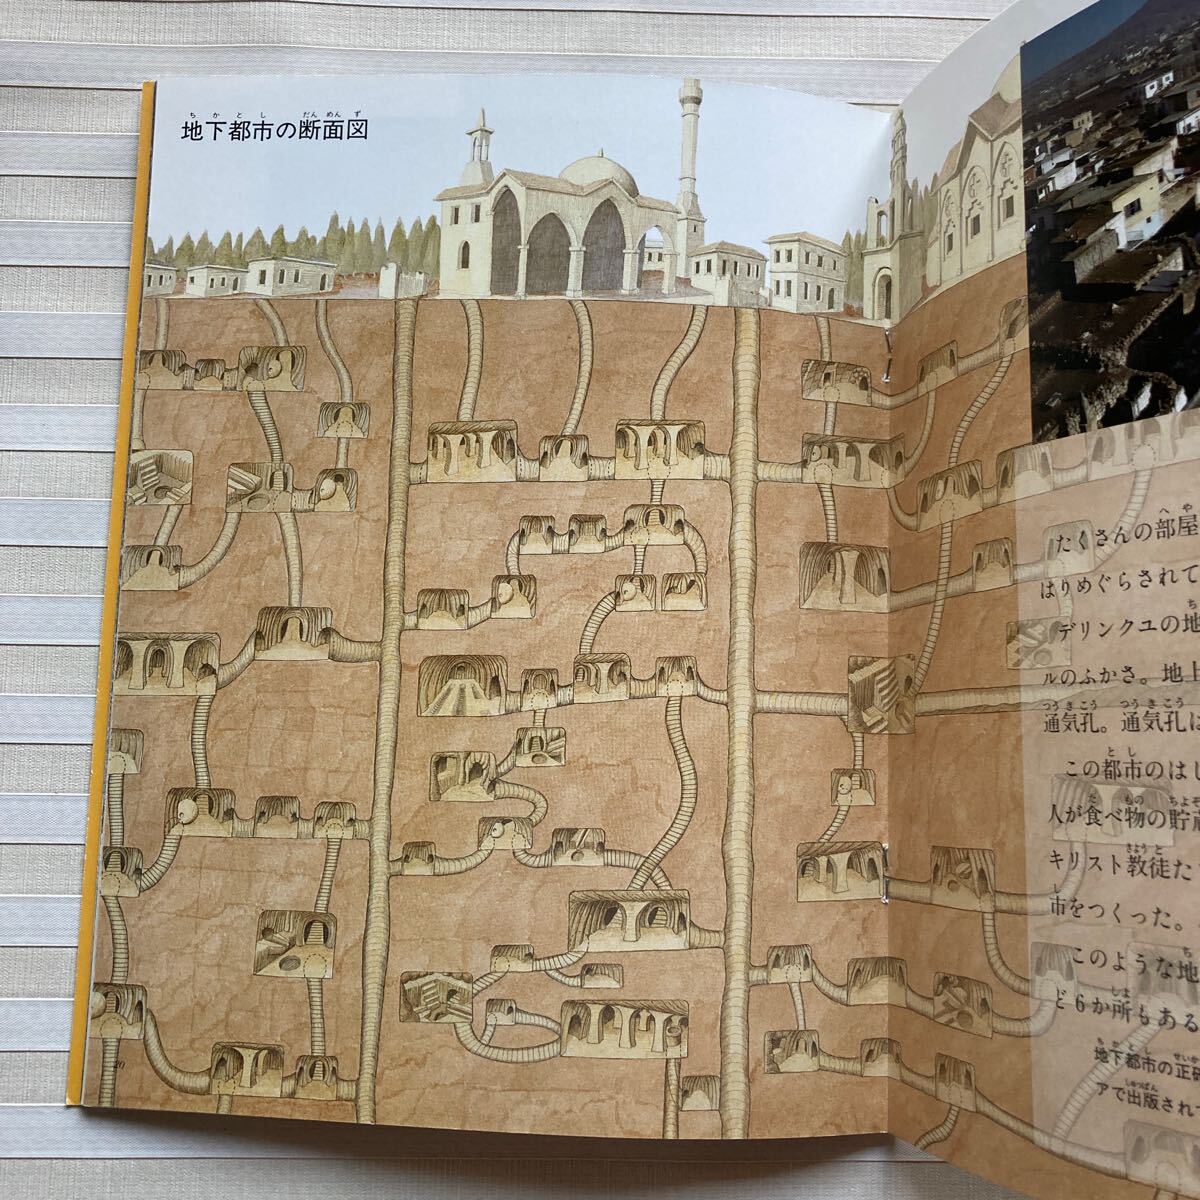 地下都市の断面図
たくさんの部屋
はりめぐらされて
デリンクユの地
ルのふかさ。地上
通気孔。通気孔は
この都市のはし
人が食べ物の貯蔵
キリスト教徒た
市をつくった。
このような地
ど6か所もある
地下都市の正確
アで出版されて
20